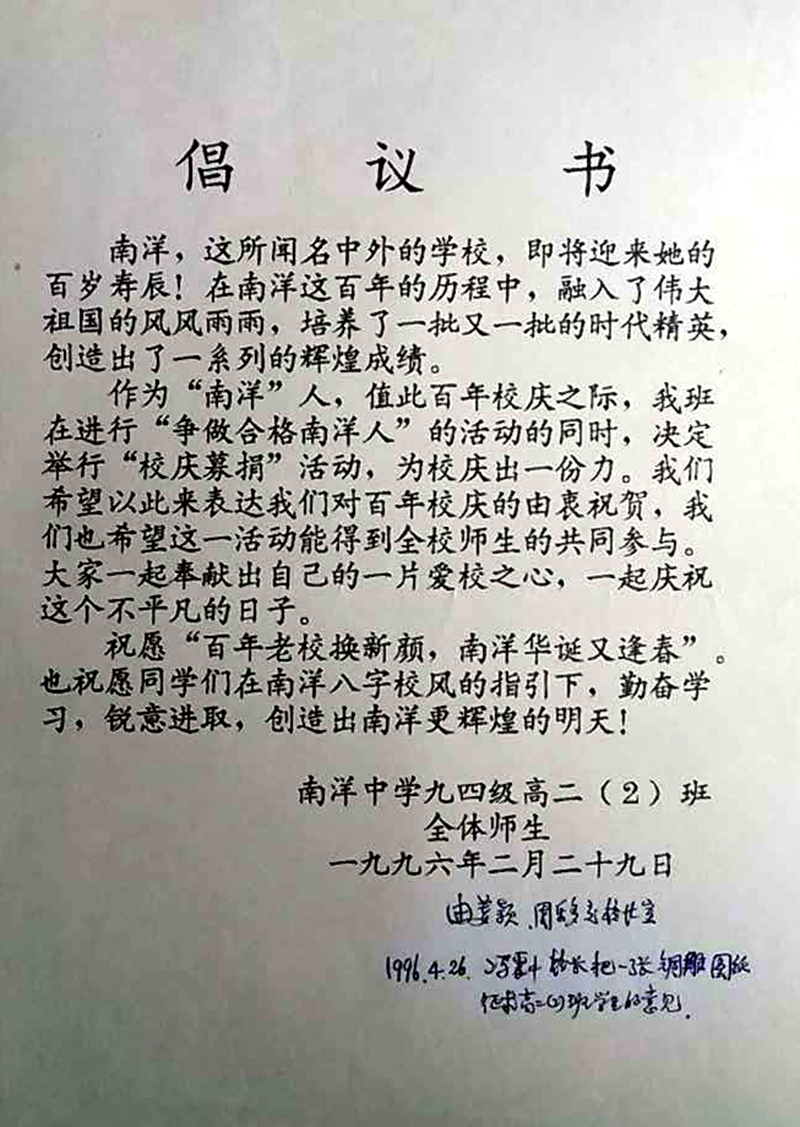 倡议书
南洋，这所闻名中外的学校，即将迎来她的
百岁寿辰！在南洋这百年的历程中，融入了伟大
祖国的风风雨雨，培养了一批又一批的时代精英，
创造出了一系列的辉煌成绩。
作为“南洋”人，值此百年校庆之际，我班
在进行“争做合格南洋人”的活动的同时，决定
举行“校庆募捐”活动，为校庆出一份力。我们
希望以此来表达我们对百年校庆的由衷祝贺，我
们也希望这一活动能得到全校师生的共同参与。
大家一起奉献出自己的一片爱校之心，一起庆祝
这个不平凡的日子。
祝愿“百年老校换新颜，南洋华诞又逢春”。
也祝愿同学们在南洋八字校风的指引下，勤奋学
习，锐意进取，创造出南洋更辉煌的明天！
南洋中学九四级高二（2）班
全体师生
一九九六年二月二十九日
由姜颖、周
1996.4.26. 校长把一张铜雕图纸
征求高二(2)班学生的意见.